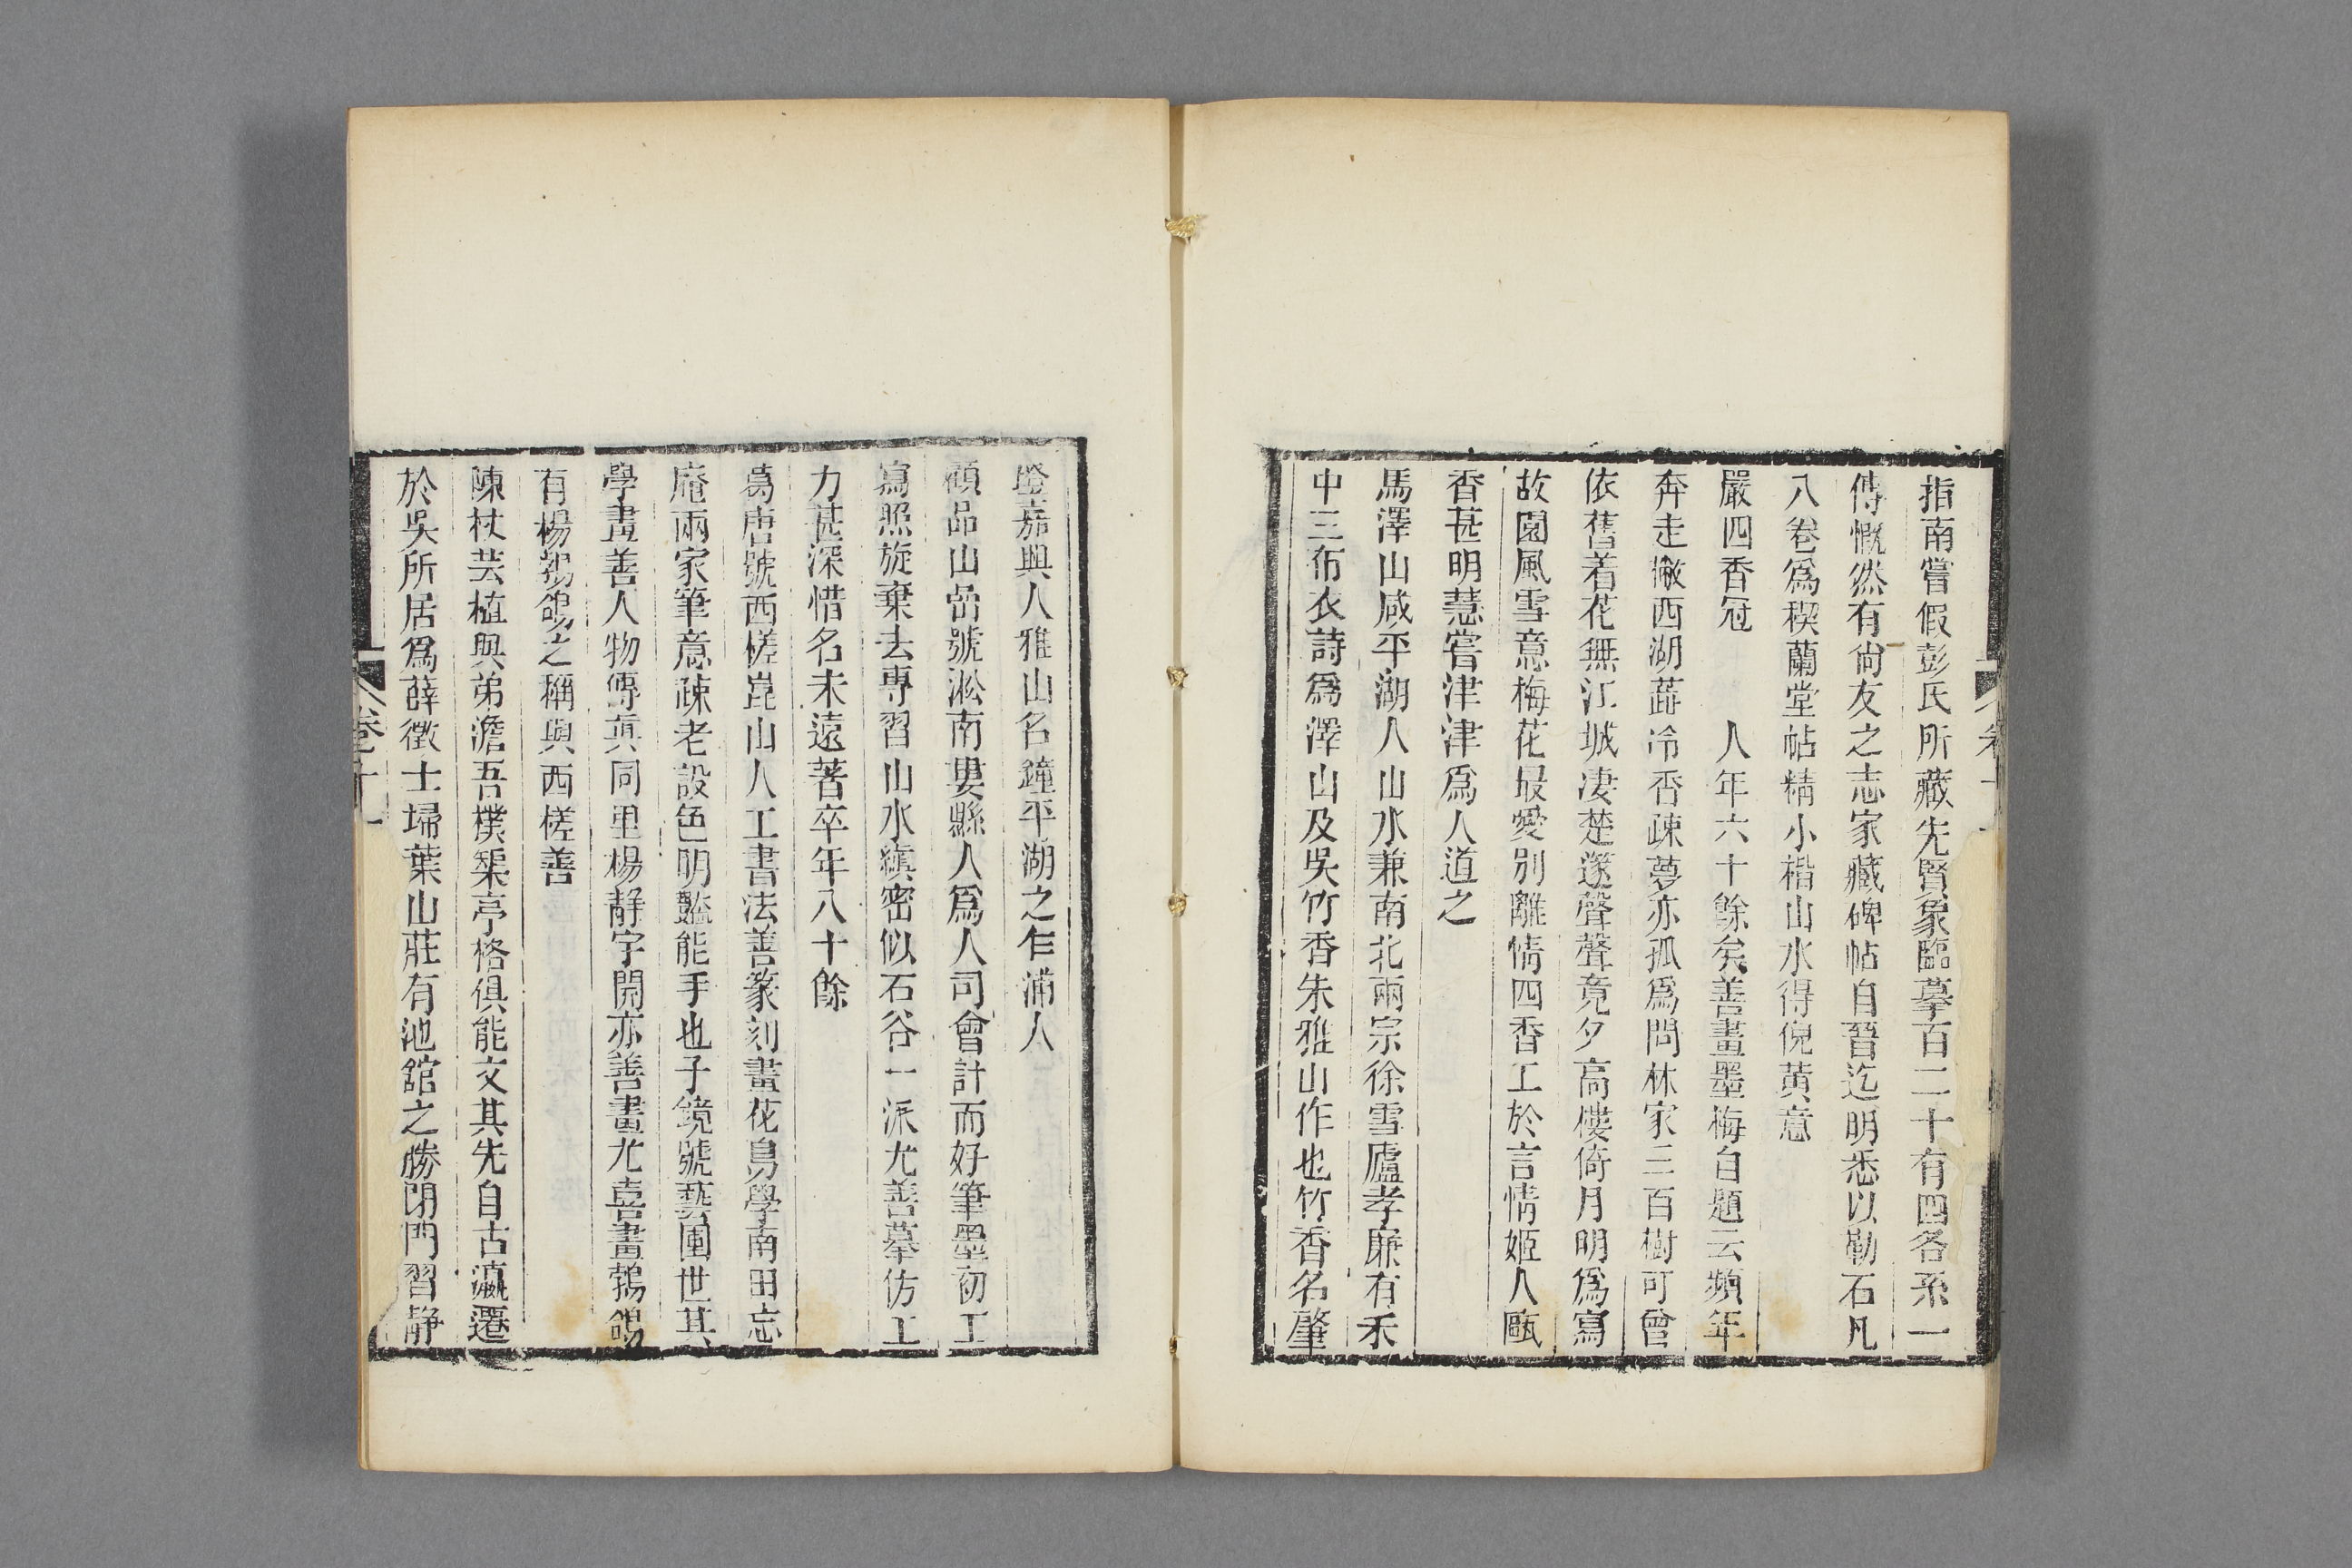 指南嘗假彭氏所藏先賢象臨摹百二十有四各系一
傳慨然有尙友之志家藏碑帖自晉迄明悉以勒石凡
八卷爲稧蘭堂帖精小楷山水得倪黃意
嚴四香冠 人年六十餘矣善畫墨梅自題云頻年
奔走懒西湖蘤冷香疎夢亦孤爲問林家三百樹可曾
依舊着花無江城凄楚篴聲聲竟夕高樓倚月明爲寫
故園風雪意梅花最愛别離情四香工於言情姬人甌
香甚明慧嘗津津爲人道之
馬澤山咸平湖人山水兼南北兩宗徐雪廬孝廉有禾
中三布衣詩爲澤山及吳竹香朱雅山作也竹香名肇
嘉興人雅山名鐘平湖之乍浦人
顧品山嵒號淞南婁縣人爲人司會計而好筆墨初工
寫照旋棄去專習山水縝密似石谷一派尤善摹仿工
力甚深惜名未遠著卒年八十餘
葛唐號西槎崑山人工書法善篆刻畫花鳥學南田忘
庵兩家筆意疎老設色明豔能手也子鏡號藝圃世其
學畫善人物傳眞同里楊靜宇開亦善畫尤喜畫鵓鴿
有楊鵓鴿之稱與西槎善
陳杖芸植與弟澹吾樸槃亭格俱能文其先自古瀛遷
於吳所居爲薛徵士埽葉山莊有池舘之勝閉門習靜
卷十
卷十